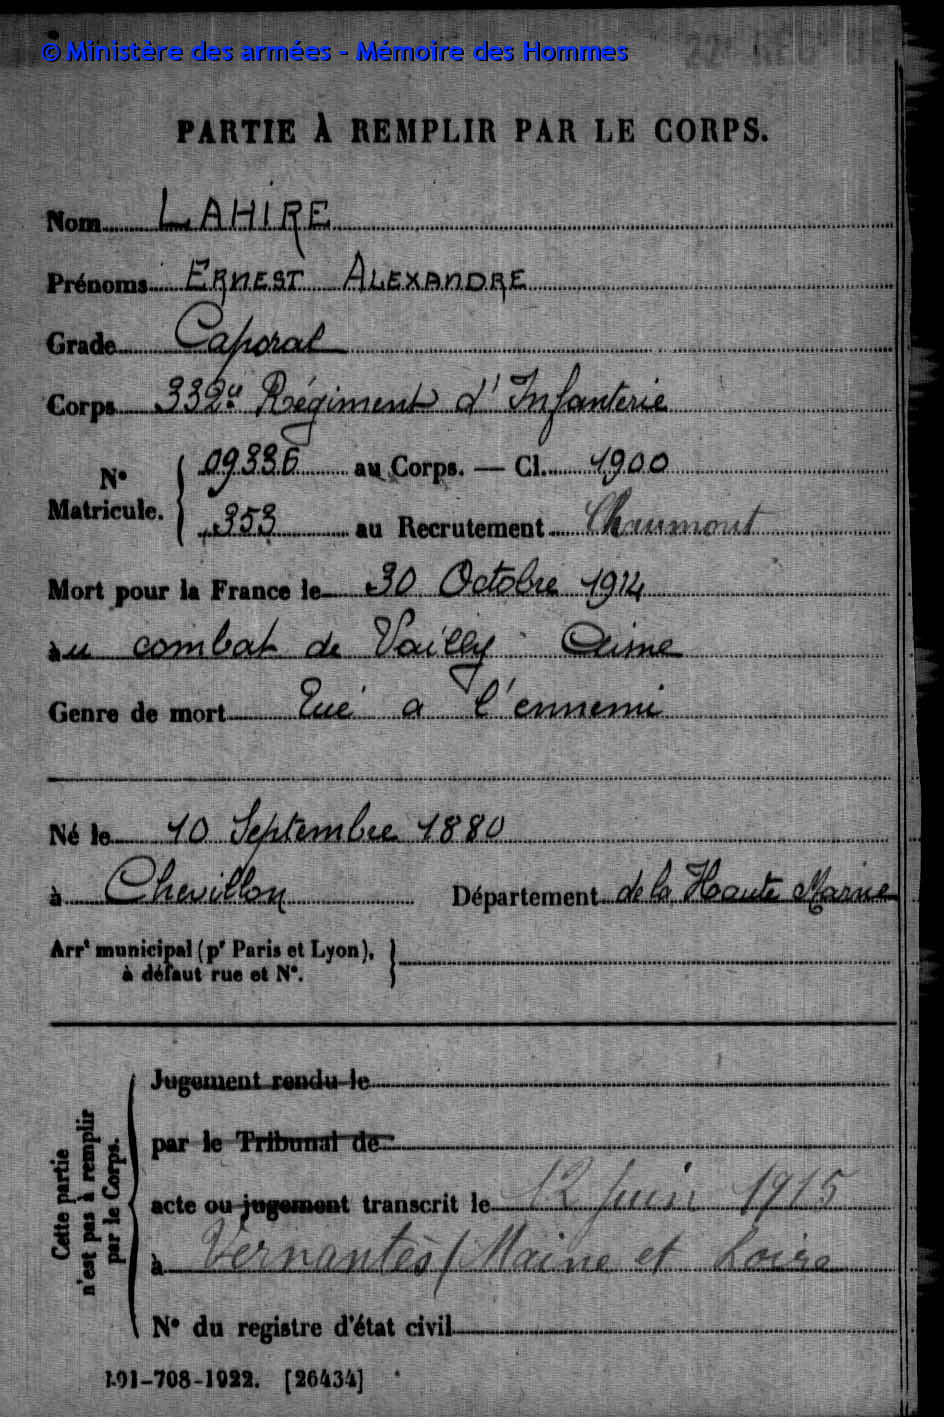 © Ministère des armées - Mémoire des Hommes
PARTIE À REMPLIR PAR LE CORPS.
Nom LAHIRE
Prénoms ERNEST ALEXANDRE
Grade Caporal
Corps 332e Régiment d'Infanterie
N° Matricule. 09336 au Corps. — Cl. 1900
353 au Recrutement Chaumont
Mort pour la France le 30 Octobre 1914
au combat de Vailly Aisne
Genre de mort Tué a l'ennemi
Né le 10 Septembre 1880
à Chevillon Département de la Haute Marne
Arrt municipal (pr Paris et Lyon),
à défaut rue et N°.
Cette partie n'est pas à remplir par le Corps.
Jugement rendu le
par le Tribunal de
acte ou jugement transcrit le 12 Juin 1915
à Vernantes (Maine et Loire
N° du registre d'état civil
191-708-1922. [26434]